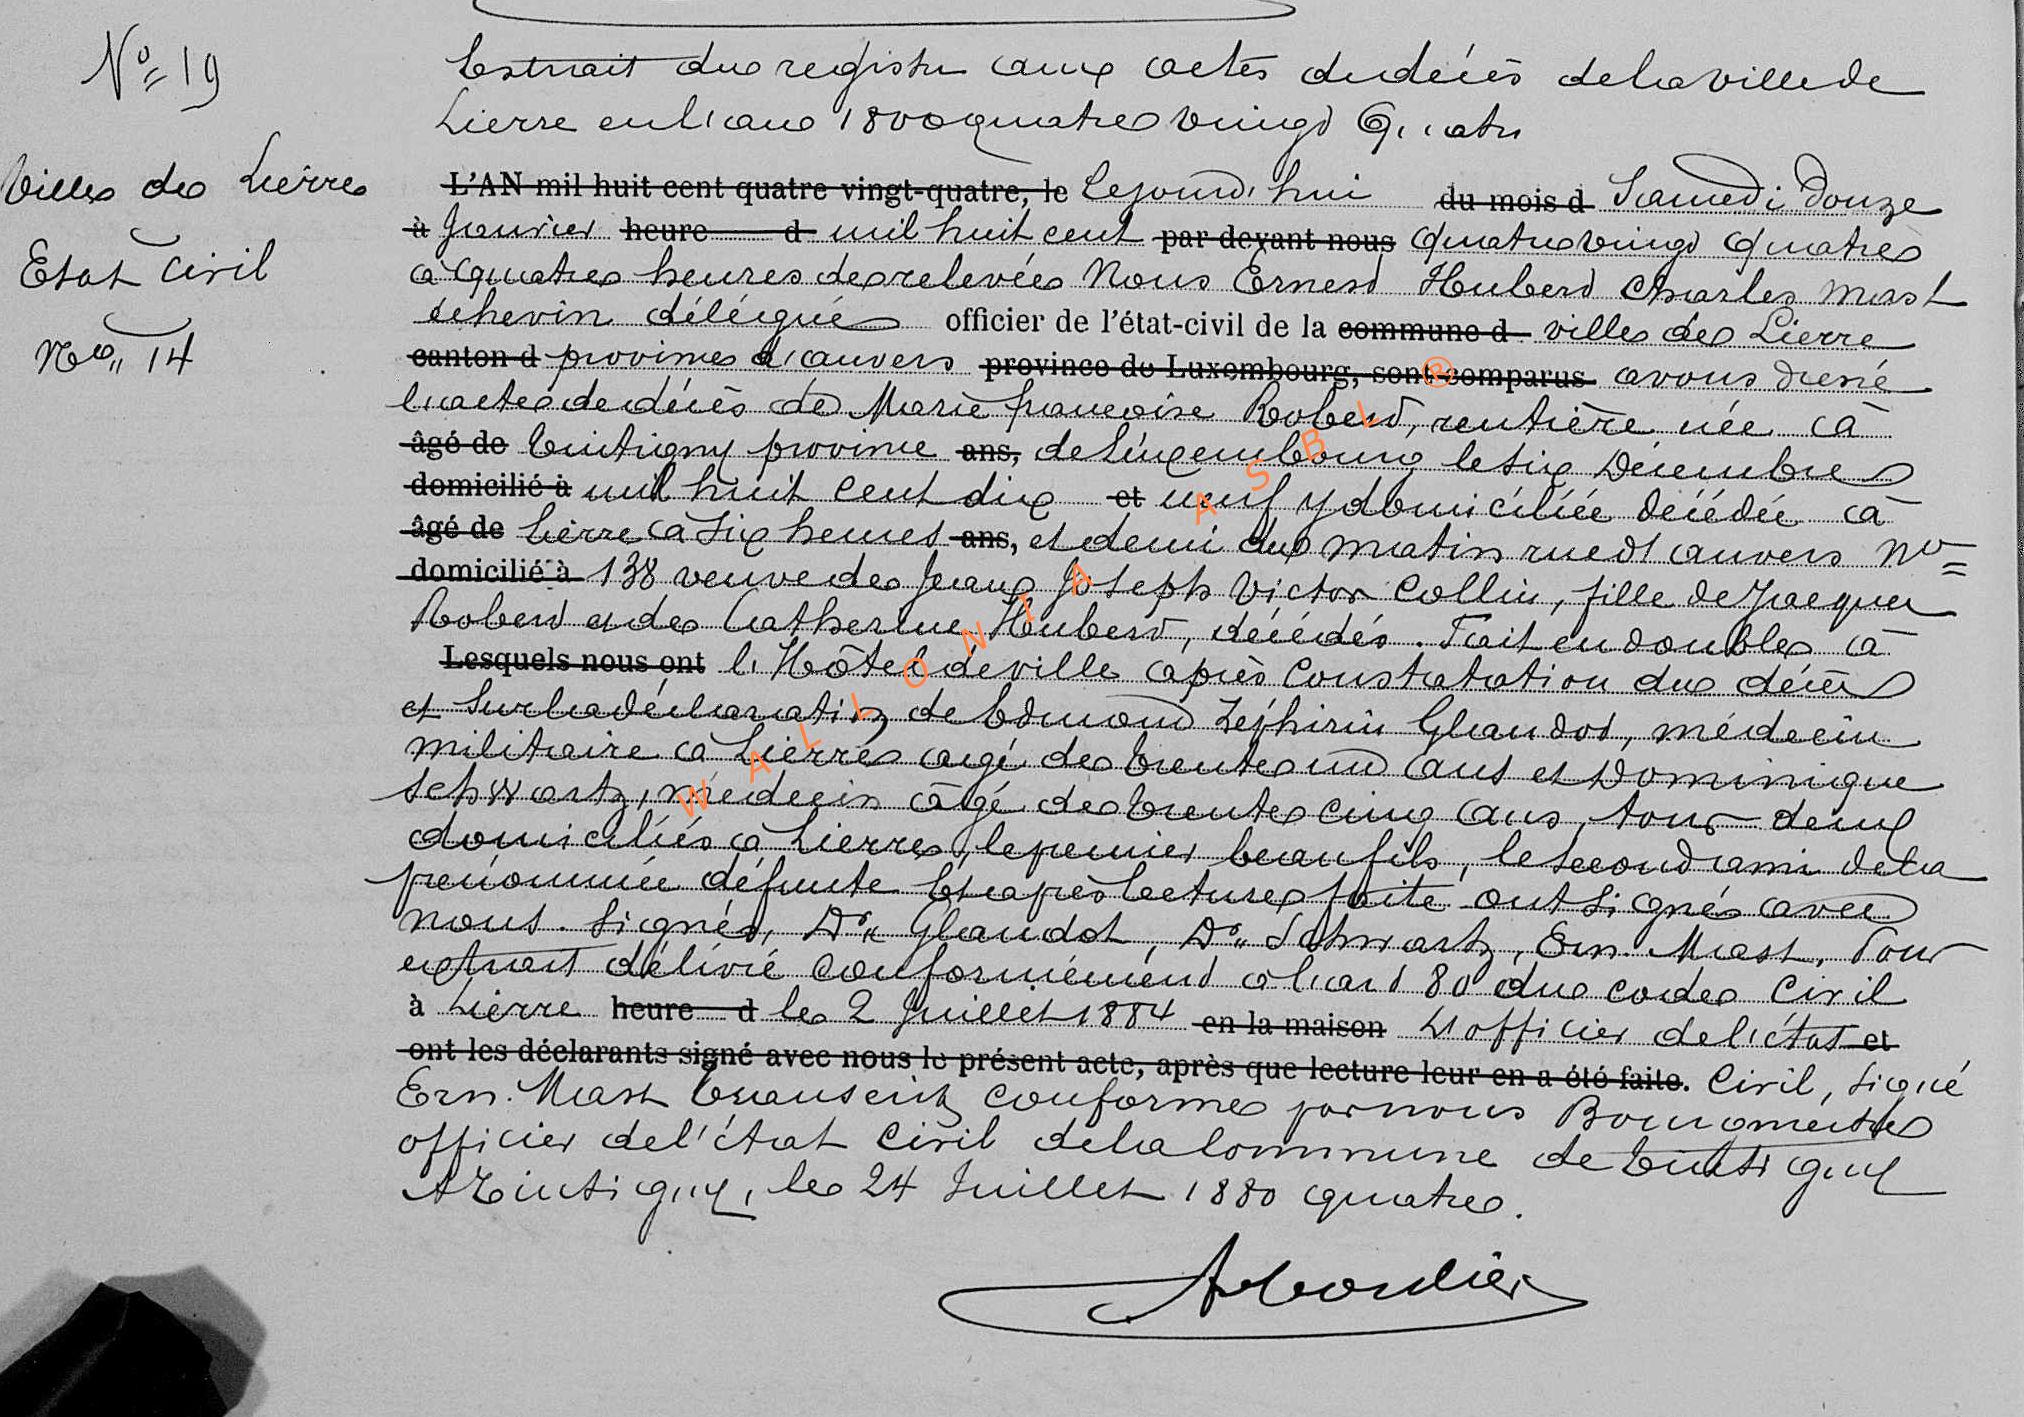 N° 19
Extrait du registre aux actes de décès de la ville de
Lierre en l'an 1800 quatre vingt Quatre
Ville de Lierre
Etat Civil
N° 14
L'AN mil huit cent quatre vingt-quatre, le Cejourd'hui du mois d Samedi Douze
à Janvier heure d mil huit cent par devant nous quatre vingt quatre
à quatre heures de relevée Nous Ernest Hubert Charles Mast
échevin délégué officier de l'état-civil de la commune d ville de Lierre
canton d province d'anvers province de Luxembourg, sont comparus avons dressé
l'acte de décès de Marie françoise Robert, rentière née à
âgé de Tintigny province ans, de Luxembourg le six Décembre
domicilié à mil huit cent dix et neuf y domiciliée décédée à
âgé de Lierre à six heures ans, et demi du matin rue d'anvers N°
domicilié à 138 veuve de Jean Joseph Victor Collin, fille de Jacques
Robert et de Catherine Hubert, décédés. Fait en double à
Lesquels nous ont l'Hôtel de ville après Constatation du décès
et sur la déclaration de Edmond Zéphirin Glaudot, médecin
militaire à Lierre agé de trente un ans et Dominique
Schwartz, médecin âgé de trente cinq ans, tous deux
domiciliés à Lierre, le premier beau fils, le second ami de la
prénommée défunte Et après lecture faite ont signés avec
nous. Signés, Dr Glaudot, Dr Schwartz, Ern. Mast. Pour
extrait délivré conformément à l'art 80 du code Civil
à Lierre heure d le 2 Juillet 1884 en la maison L'officier de l'état et
ont les déclarants signé avec nous le présent acte, après que lecture leur en a été faite. Civil, signé
Ern. Mast transcrit conforme par nous Bourgmestre
officier de l'état Civil de la Commune de Tintigny
A Tintigny, le 24 Juillet 1880 quatre.
WALLONIA ASBL ®